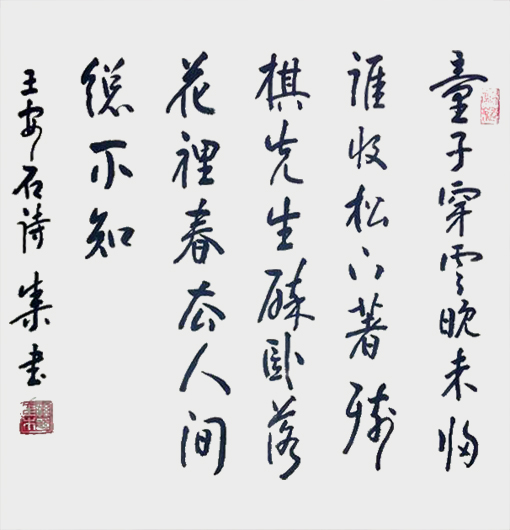 童子穿雲晚未歸
誰收松下著殘
棋先生醉臥落
花裡春去人間
總不知
王安石詩 書